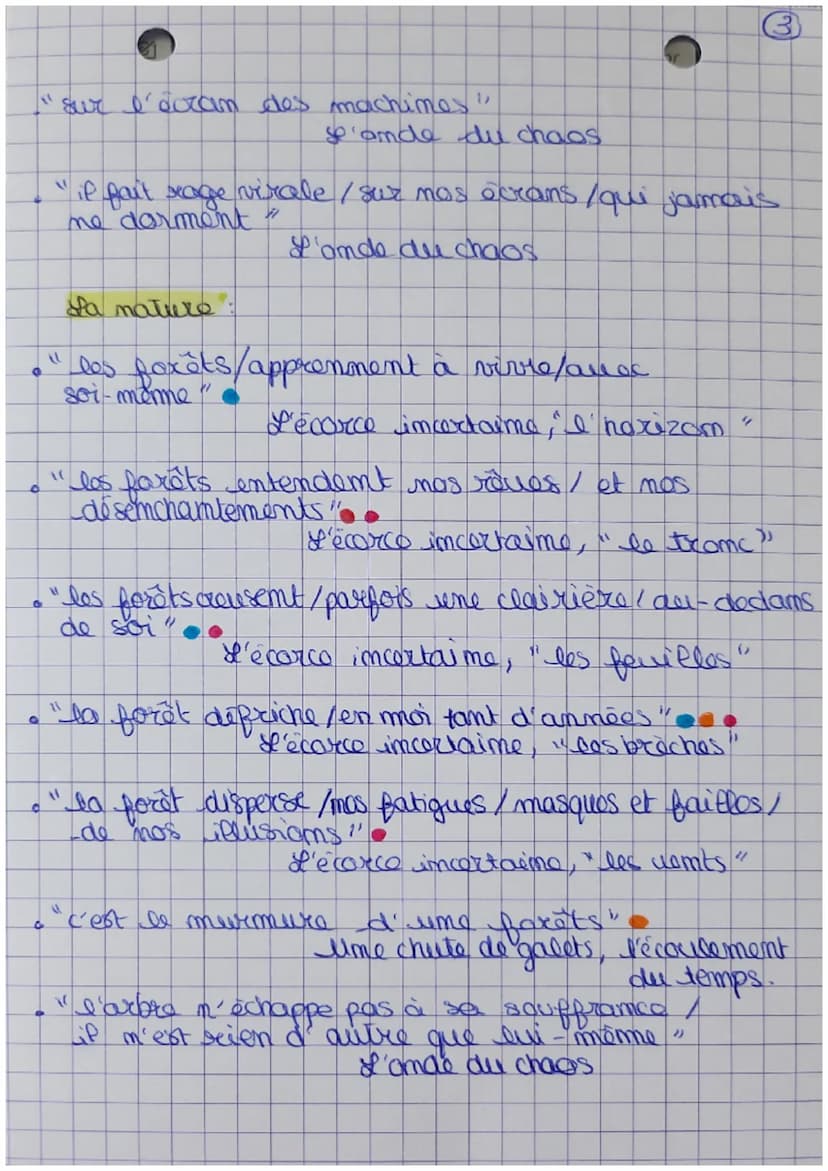 3
. "sur l'écran des machines"
L'onde du chaos
. "il fait rage virale / sur nos écrans / qui jamais
ne dorment"
L'onde du chaos
La nature :
. "les forêts / apprennent à vivre / avec
soi-même"
L'écorce incertaine, "l'horizon"
. "les forêts entendent nos rêves / et nos
désenchantements"
L'écorce incertaine, "le tronc"
. "les forêts creusent / parfois une clairière / au-dedans
de soi"
L'écorce incertaine, "les feuilles"
. "la forêt défriche / en moi tant d'années"
L'écorce incertaine, "les brèches"
. "la forêt disperse / nos fatigues / masques et failles /
de nos illusions"
L'écorce incertaine, "les vents"
. "c'est le murmure d'une forêts"
Une chute de galets, l'écoulement
du temps.
. "l'arbre n'échappe pas à sa souffrance /
il n'est rien d'autre que lui-même"
L'onde du chaos